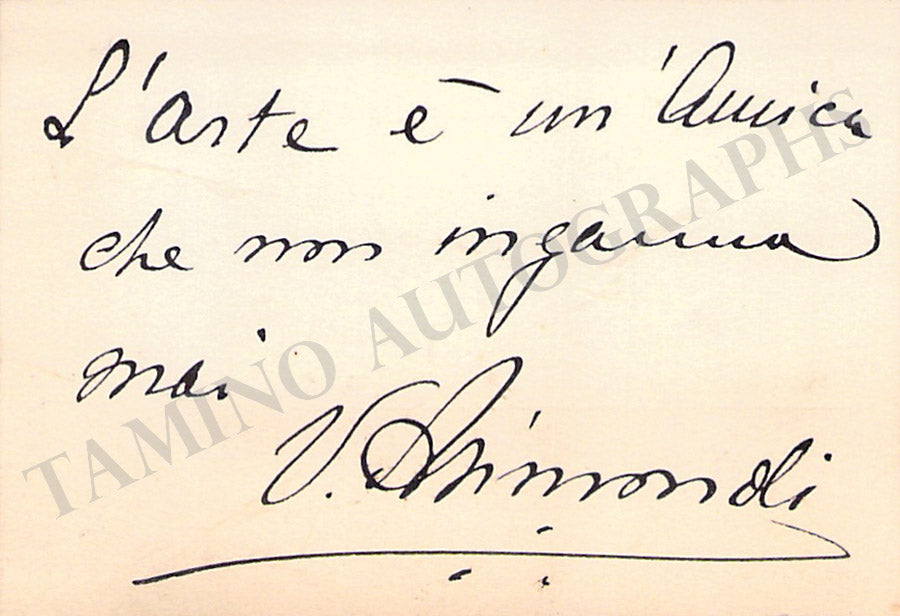 L'arte è un'Amica
che non inganna
mai
V. Arimondi
TAMINO AUTOGRAPHS